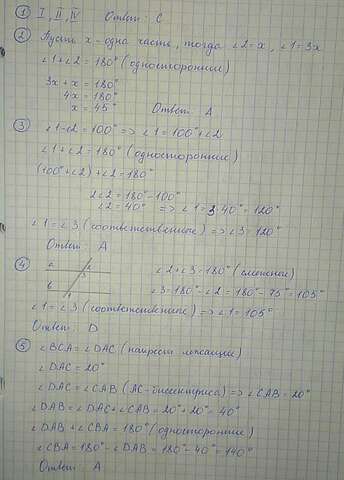 ① I, II, IV Ответ: C
② Пусть x - одна часть, тогда ∠2=x, ∠1=3x
∠1+∠2=180° (односторонние)
3x+x=180°
4x=180°
x=45° Ответ: A
③ ∠1-∠2=100° => ∠1=100°+∠2
∠1+∠2=180° (односторонние)
(100°+∠2)+∠2=180°
2∠2=180°-100°
∠2=40° => ∠1=3·40°=120°
∠1=∠3 (соответственные) => ∠3=120°
Ответ: A
④ a 2 3 ∠2+∠3=180° (смежные)
b 1 ∠3=180°-∠2=180°-75°=105°
∠1=∠3 (соответственные) => ∠1=105°
Ответ: D
⑤ ∠BCA=∠DAC (накрест лежащие)
∠DAC=20°
∠DAC=∠CAB (AC-биссектриса) => ∠CAB=20°
∠DAB=∠DAC+∠CAB=20°+20°=40°
∠DAB+∠CBA=180° (односторонние)
∠CBA=180°-∠DAB=180°-40°=140°
Ответ: A